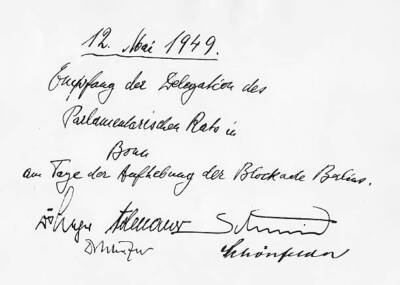 12. Mai 1949.
Empfang der Delegation des
Parlamentarischen Rats in
Bonn
am Tage der Aufhebung der Blockade Berlins.
Adenauer Schmid
Schönfelder